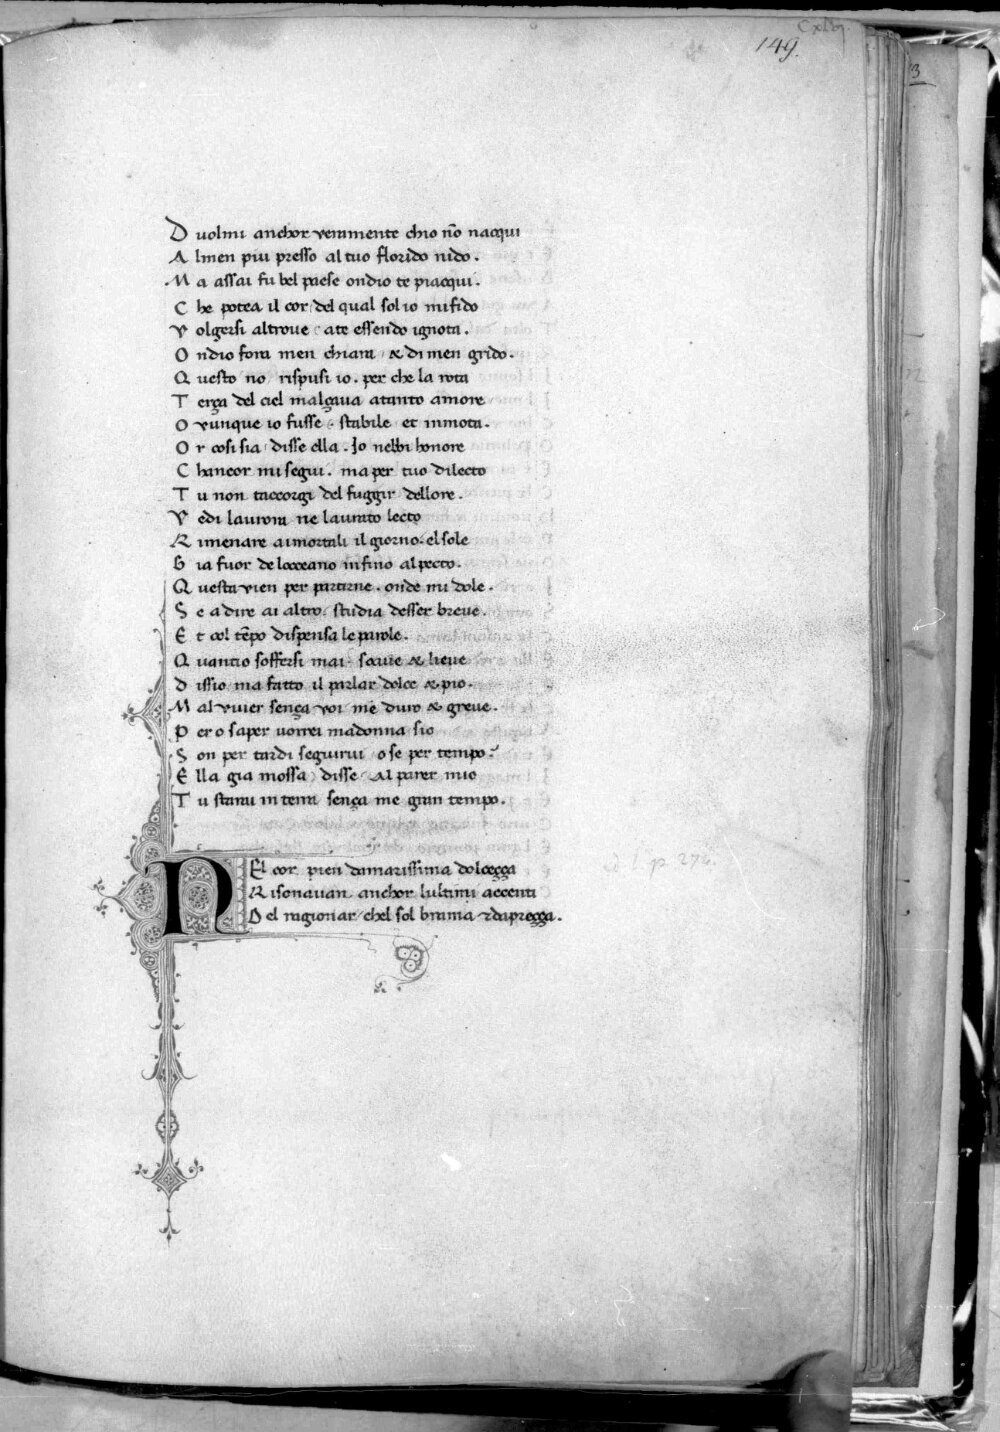 149.
D uolmi anchor veramente chio nō nacqui
A lmen piu presso al tuo florido nido.
M a assai fu bel paese ondio te piacqui.
C he potea il cor del qual sol io mi fido
V olgersi altroue ate essendo ignota.
O ndio fora men chiara & di men grido.
Q uesto no rispusi io. per che la rota
T erça del ciel malçaua atanto amore
O vunque io fusse stabile et inmota.
O r cosi sia disse ella. Io nebbi honore
C hancor mi segui. ma per tuo dilecto
T u non taccorgi del fuggir dellore.
V edi laurora ne laurato lecto
R imenare aimortali il giorno. el sole
G ia fuor de loceano infino alpecto.
Q uesta vien per partirne. onde mi dole.
S e a dire ai altro. studia desser breue.
E t col tēpo dispensa le parole.
Q uantio soffersi mai. soaue & lieue
D issio ma fatto il parlar dolce & pio.
M al viuer sença voi me duro & greue.
P ero saper uorrei madonna sio
S on per tardi seguirui o se per tempo.
E lla gia mossa disse Al parer mio
T u starai in terra sença me gran tempo.
N El cor pien damarissima dolceçça
R isonauan anchor lultimi accenti
D el ragionar chel sol brama & dapreçça.